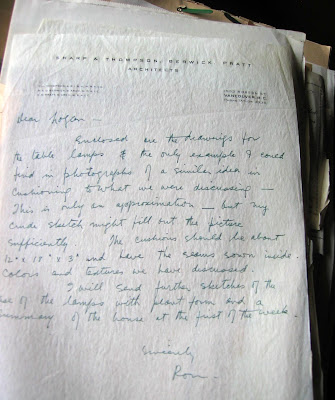 SHARP & THOMPSON, BERWICK, PRATT
ARCHITECTS
Dear Logan —
Enclosed are the drawings for
the table lamps & the only example I could
find in photographs of a similar idea in
cushioning to what we were discussing —
This is only an approximation — but my
crude sketch might fill out the picture
sufficently. The cushions should be about
12" x 18" x 3" and have the seams sewn inside.
Colors and textures we have discussed.
I will send further sketches of the
of the lamps with plant form and a
summary of the house at the first of the week.
Sincerely
Ron —